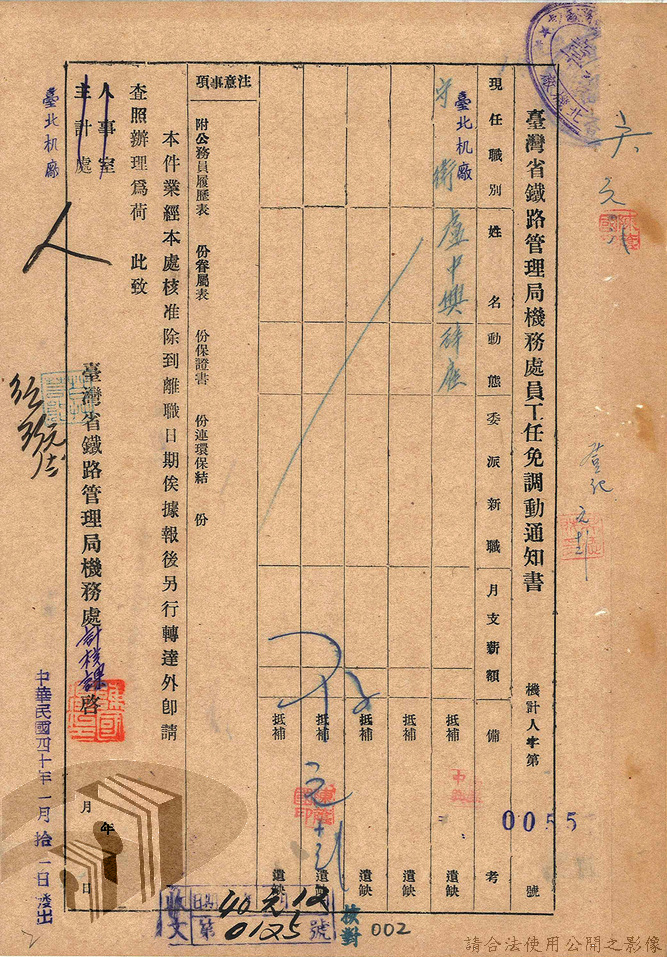 臺灣省鐵路管理局機務處員工任免調動通知書
機計人字第 0055 號
現任職別 姓名 動態 委派新職 月支薪額 備考
臺北机廠
守衛 盧中興 辞应
抵補 遺缺
抵補 遺缺
抵補 遺缺
抵補 遺缺
抵補 遺缺
注意事項
附公務員履歷表 份眷屬表 份保證書 份連環保結 份
本件業經本處核准除到離職日期俟據報後另行轉達外卽請
查照辦理爲荷 此致
人事室
主計處
臺北机廠
人
臺灣省鐵路管理局機務處計核課啓
年 月 日
中華民國四十年一月拾一日發出
登记
收文 日期 40元12
第 0125 號
核對
002
請合法使用公開之影像